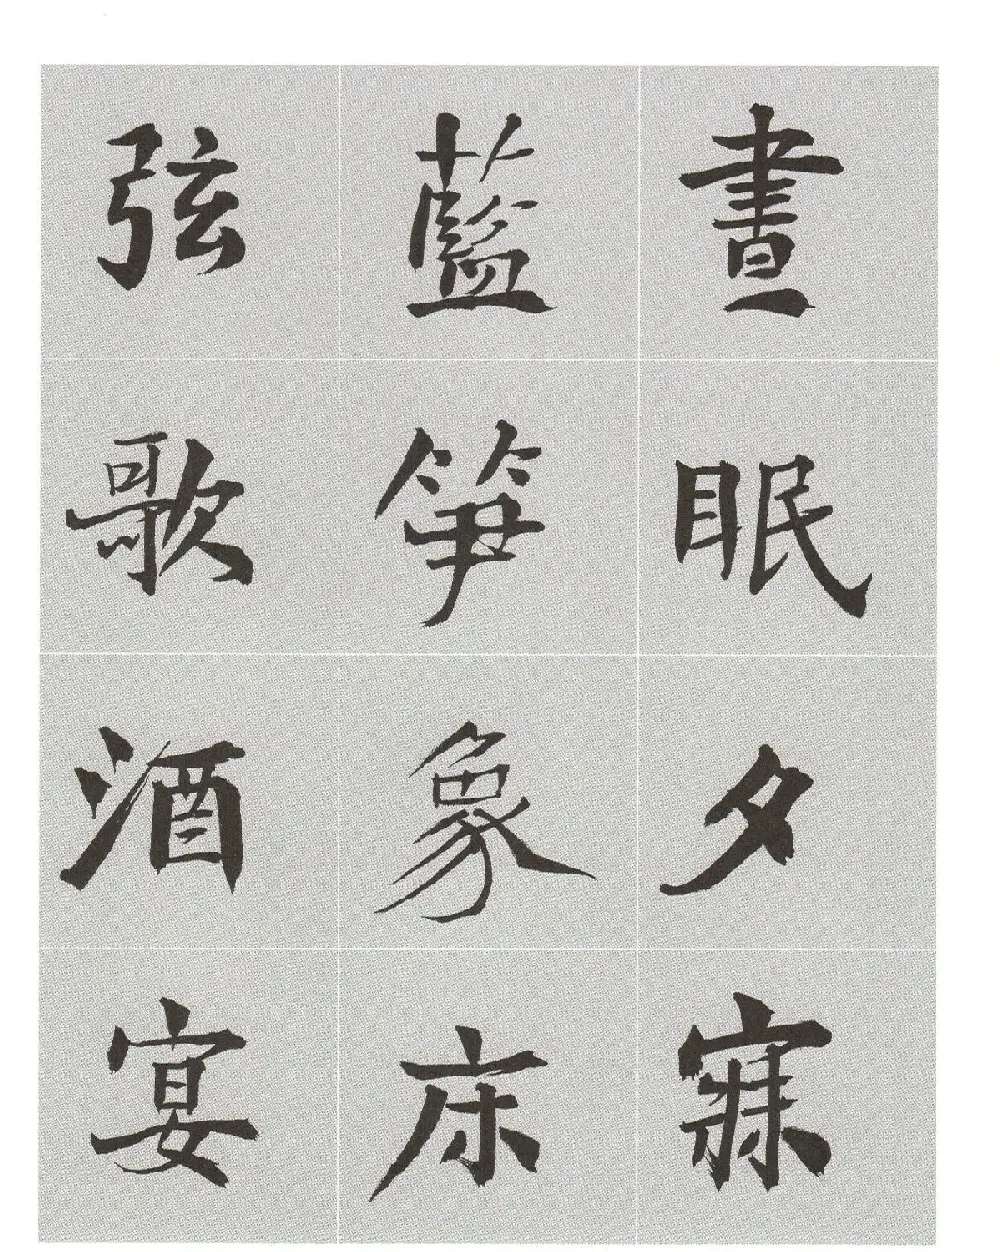 晝眠夕寐
藍笋象床
弦歌酒宴